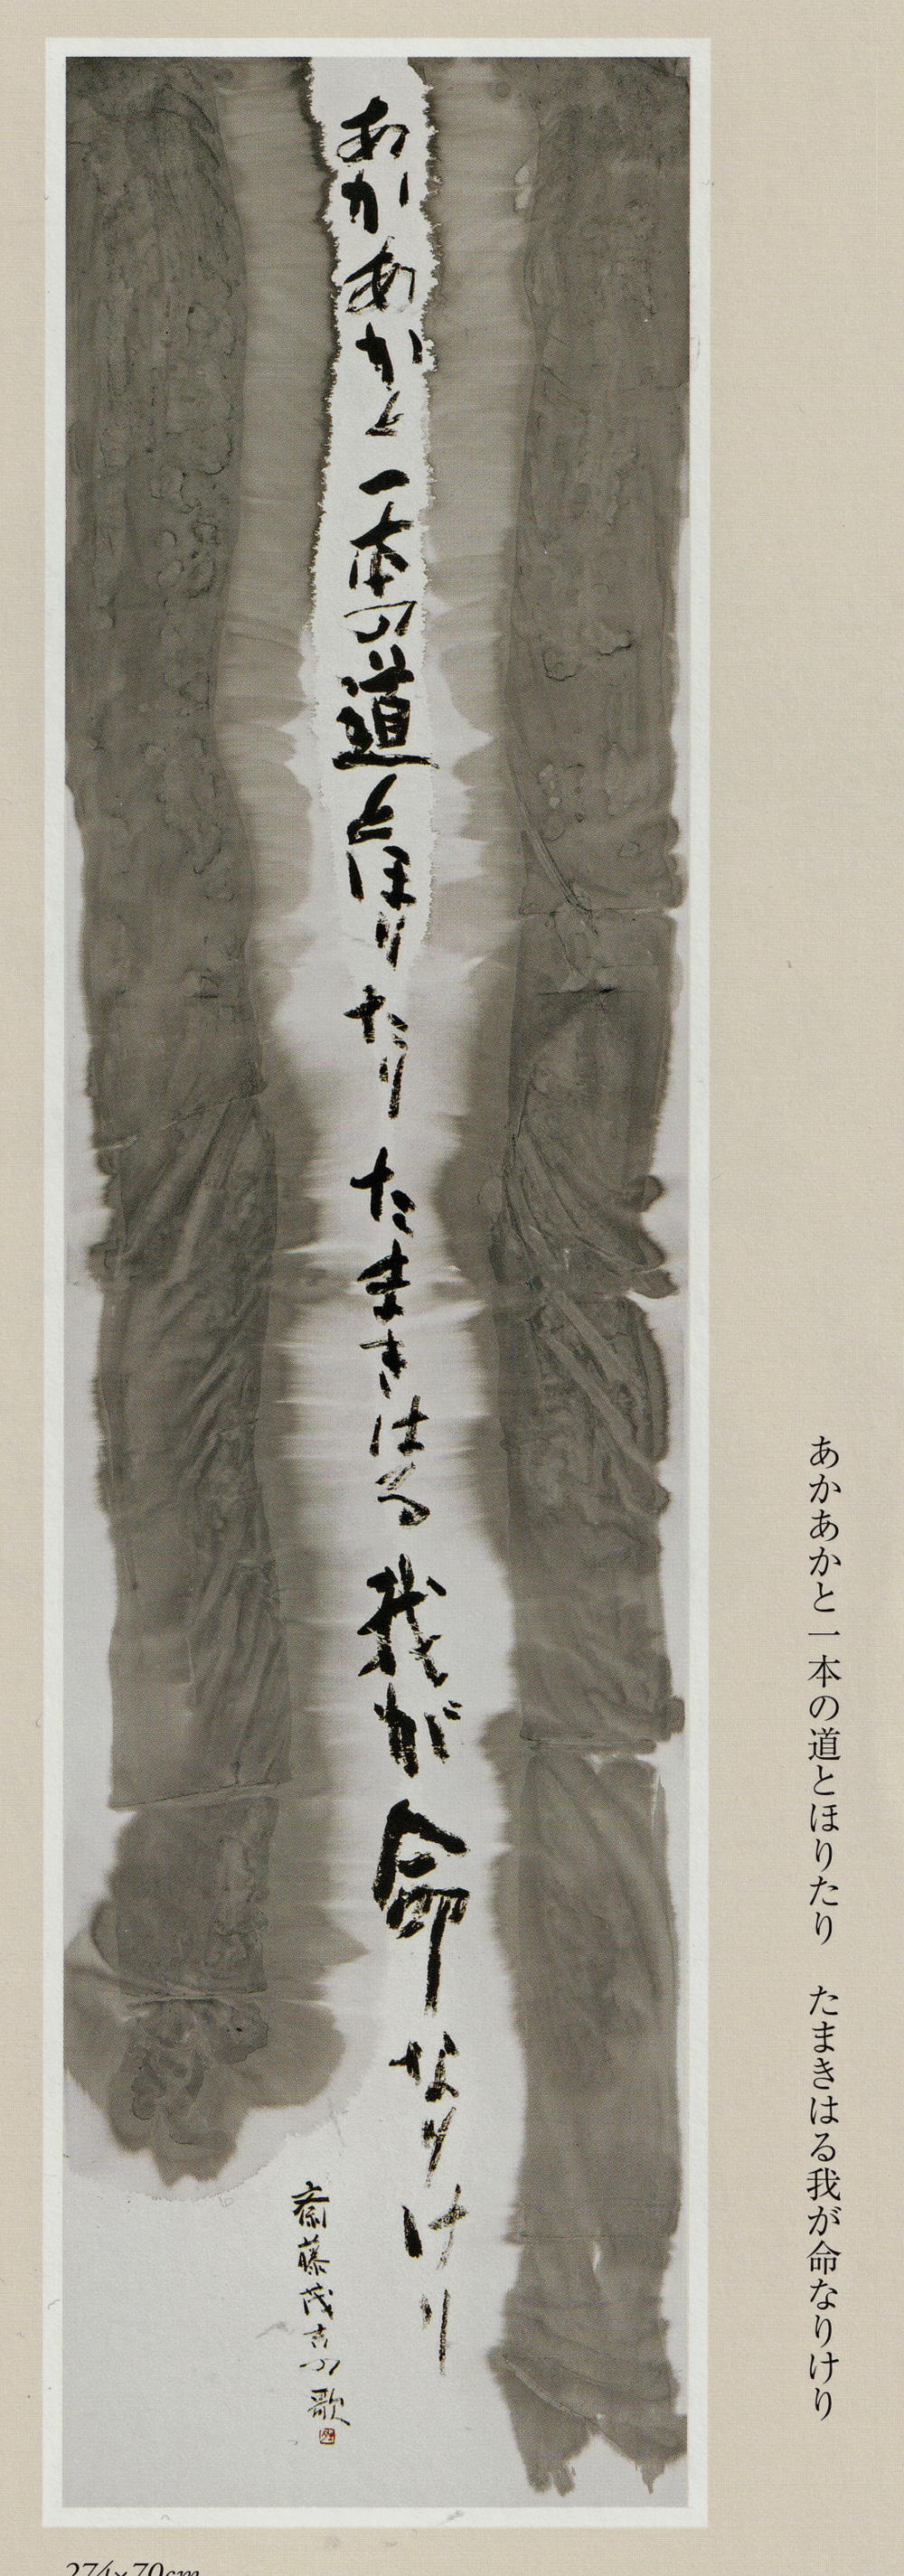 あかあかと一本の道とほりたり　たまきはる我が命なりけり
あかあかと一本の道とほりたりたまきはる我が命なりけり
斎藤茂吉の歌
274×70cm